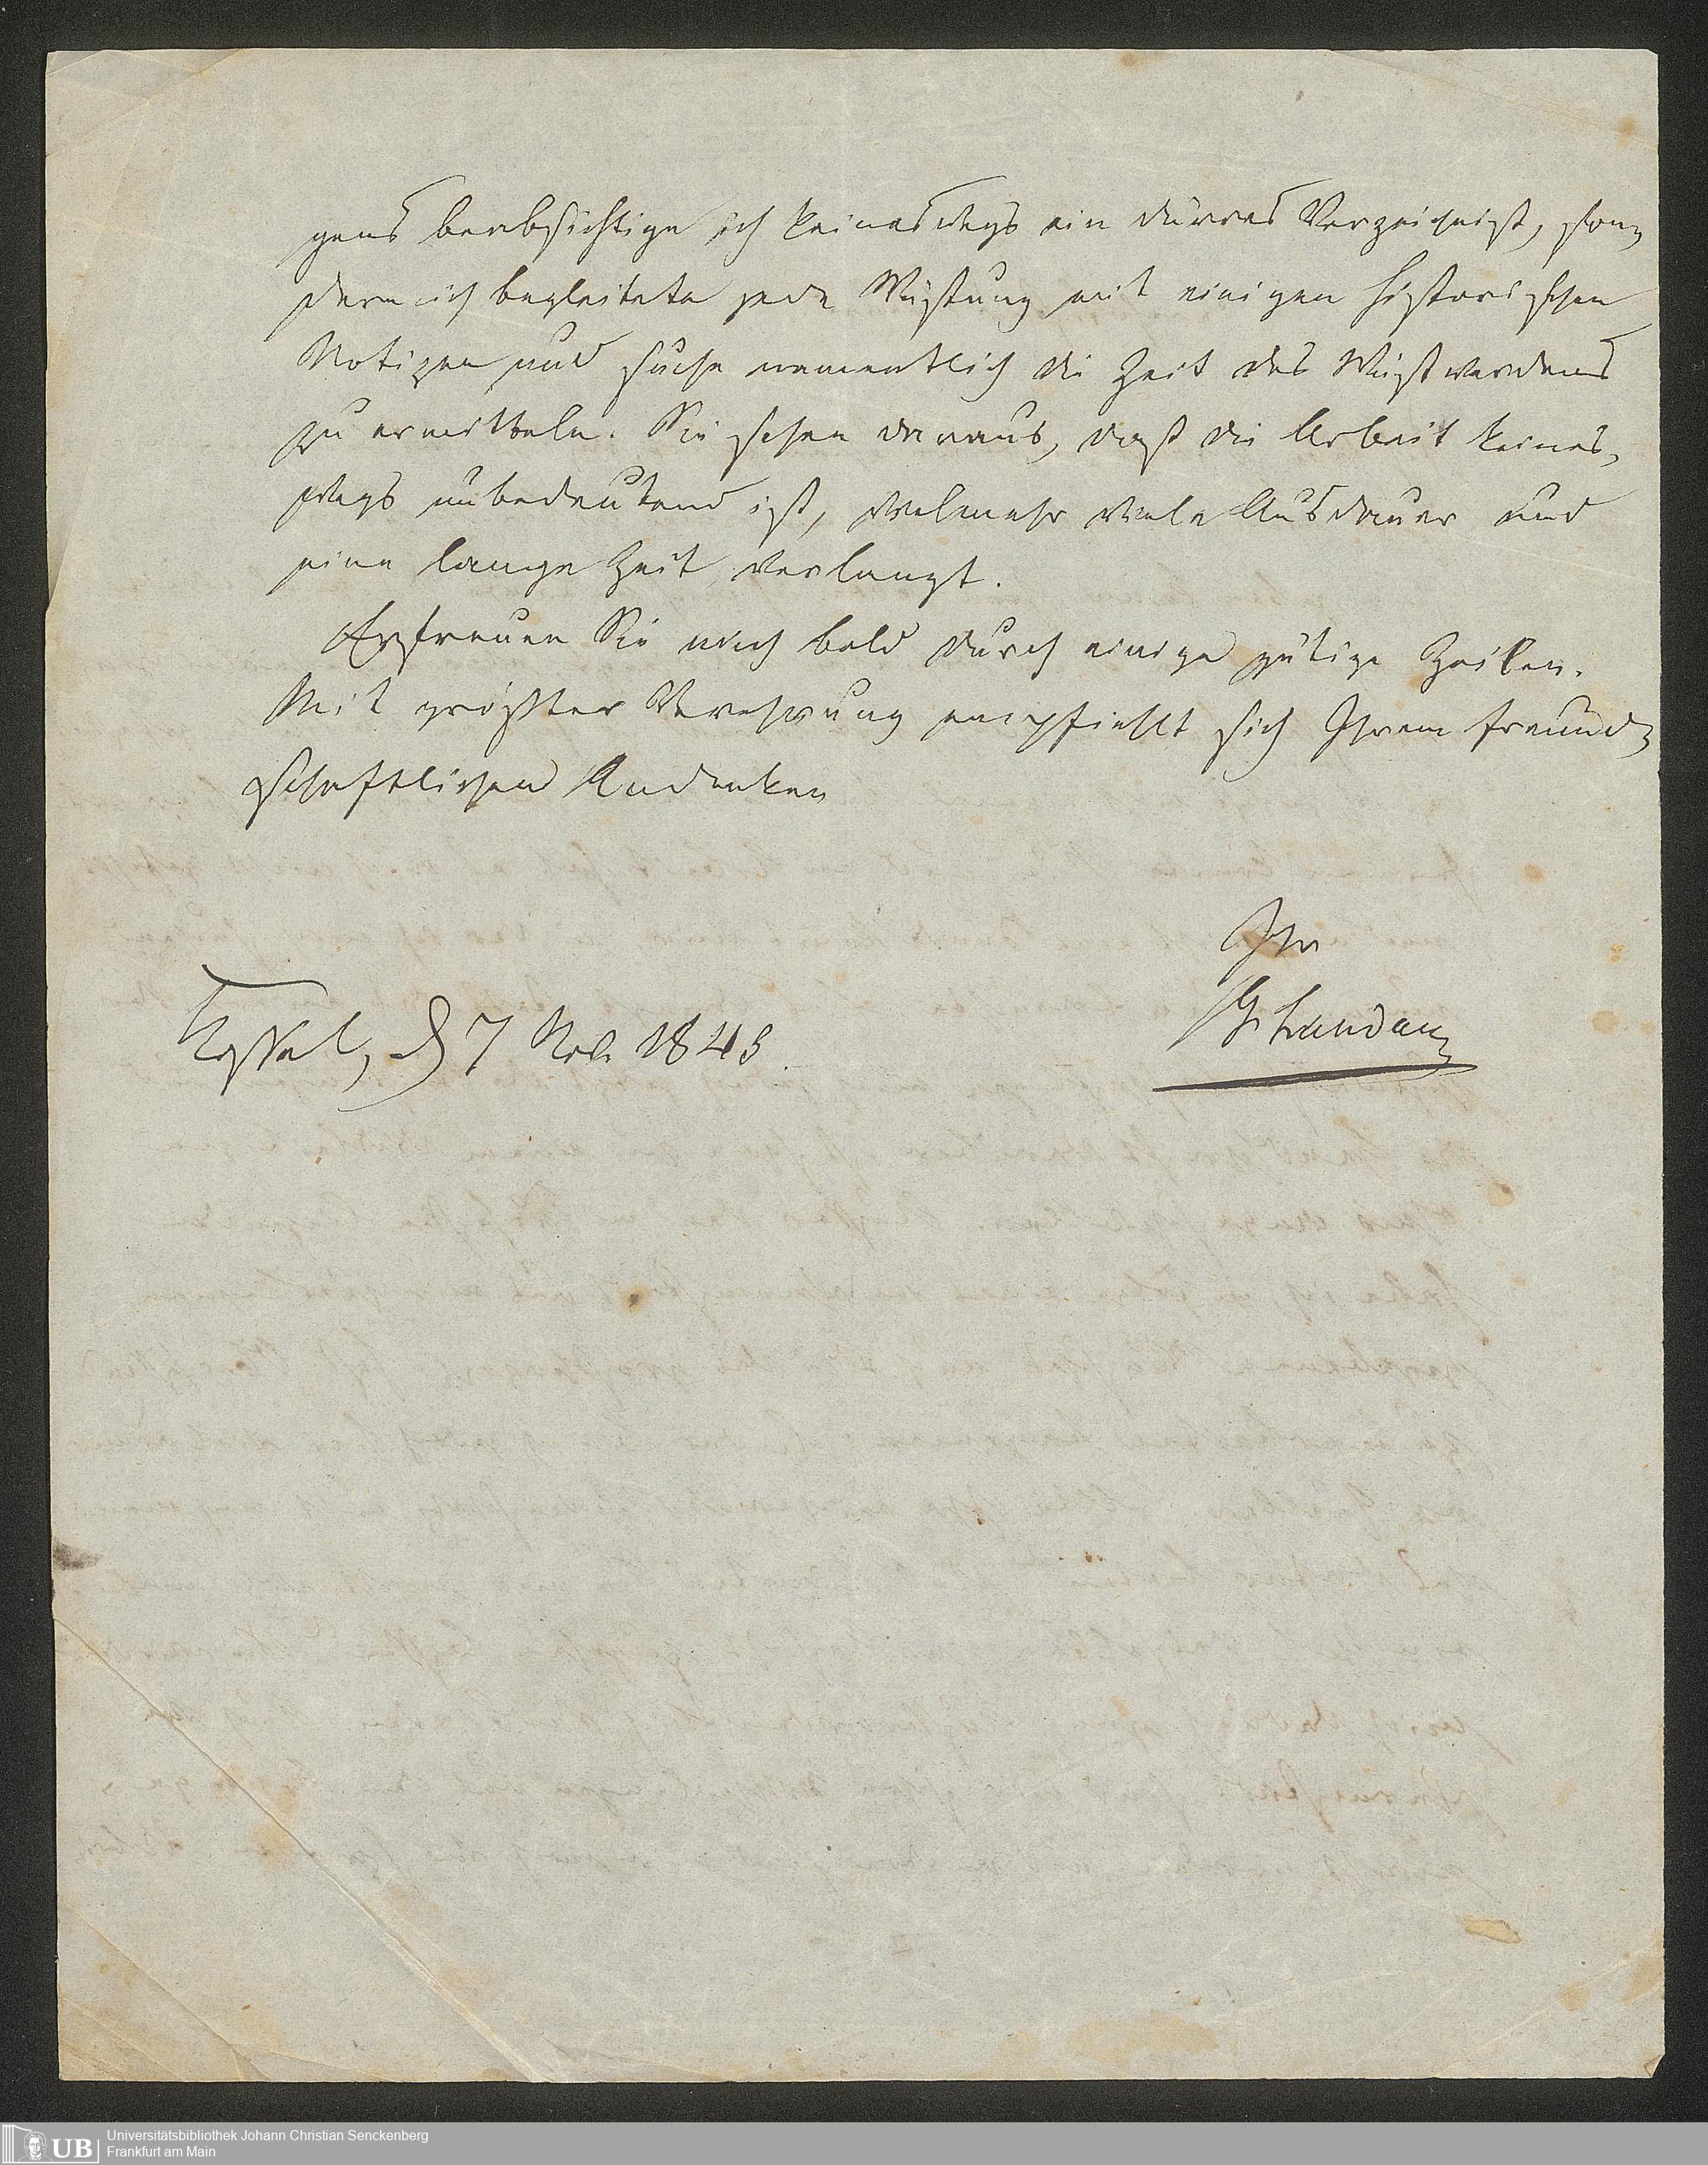 gens beabsichtige ich keineswegs ein dürres Verzeichnist, son-
dern ich begleitete jede Wüstung mit einigen historischen
Notizen und suche namentlich die Zeit des Wüstwerdens
zu ermitteln. Sie sehen daraus, daß die Arbeit keines-
wegs unbedeutend ist, vielmehr viele Ausdauer und
eine lange Zeit verlangt.
Erfreuen Sie mich bald durch einige gütige Zeilen.
Mit größter Verehrung empfiehlt sich Ihrem freund-
schaftlichen Andenken
Ihr
G Landau
Kassel, d 7 Nov. 1843.
UB
Universitätsbibliothek Johann Christian Senckenberg
Frankfurt am Main